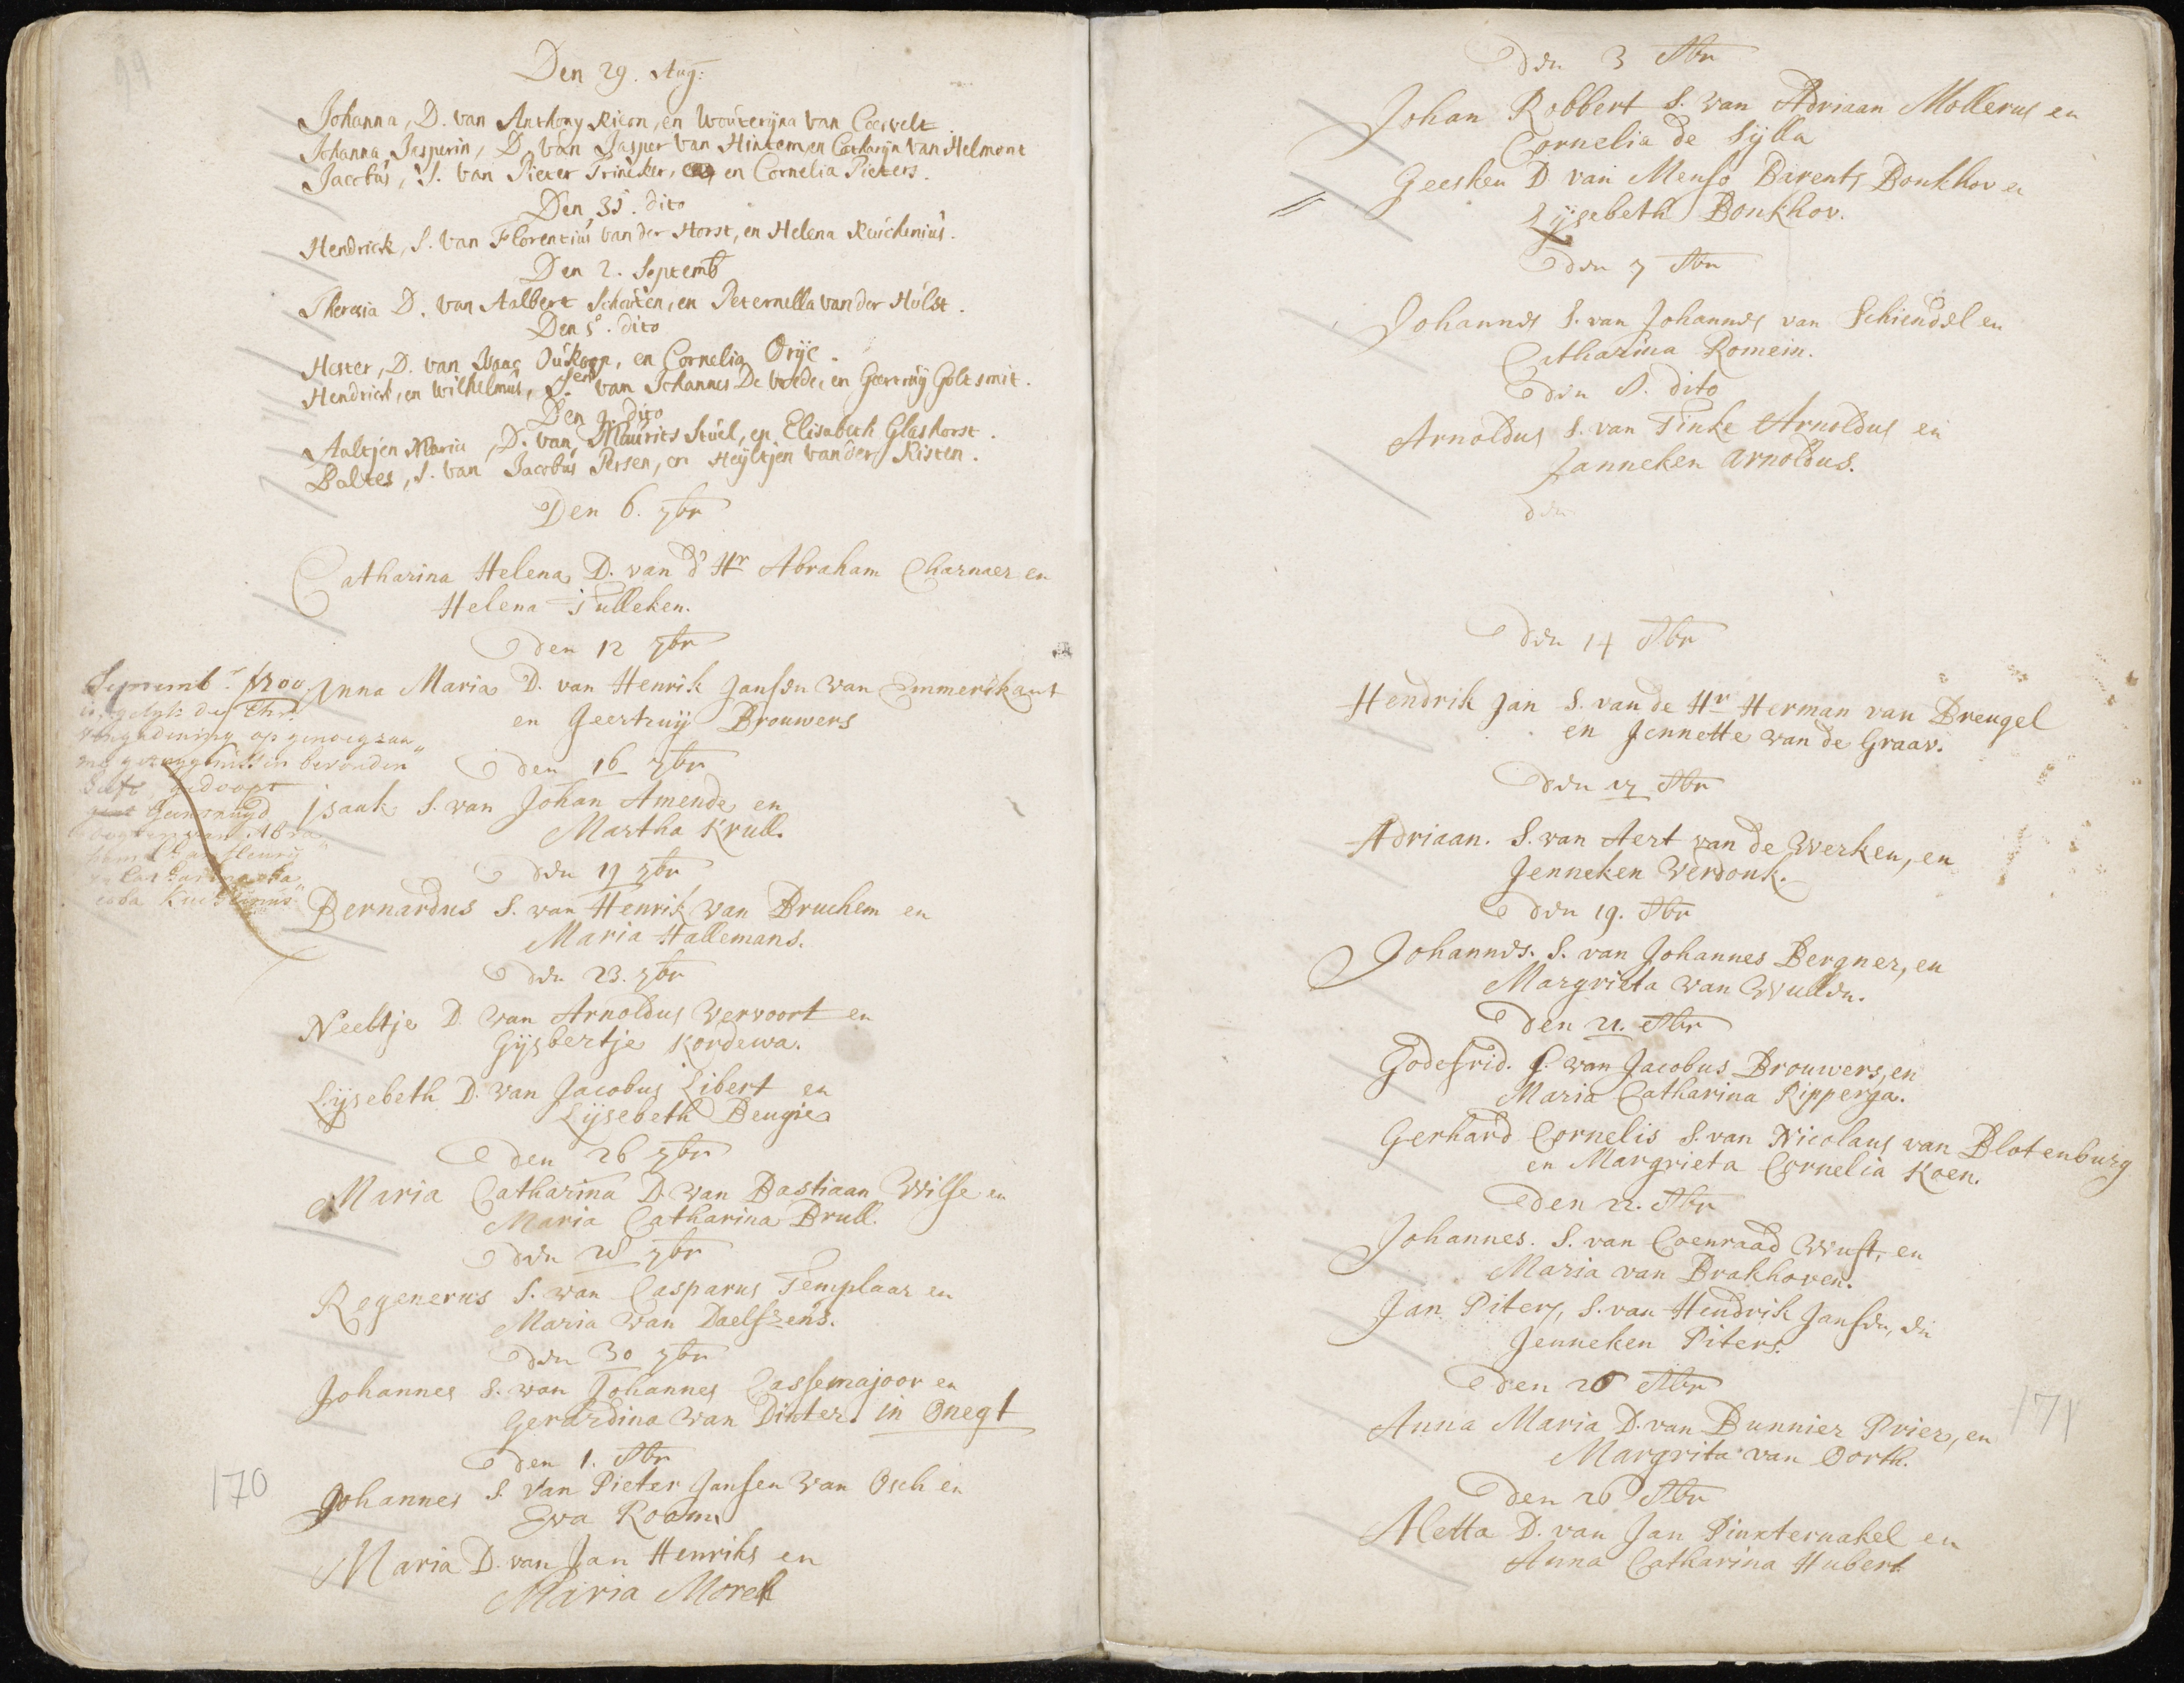 Den 29. Aug:
Johanna, D. van Anthony Ricon, en Wouterijna van Coesvelt
Johanna Jasperin, D. van Jasper van Hintem, en Catharijn van Helmont
Jacobus, S. van Pieter Trincker, en Cornelia Pieters.
Den 31. dito
Hendrick, S. van Florentius van der Horst, en Helena Reuchenius.
Den 2. Septemb
Theresia D. van Aalbert Schouten, en Peternella van der Hulst.
Den 5. dito
Hester, D. van Isaac Oukoop, en Cornelia Orije.
Hendrick, en Wilhelmus, S.en van Johannes De Voede, en Geertruij Goltsmit.
Den 9. dito
Aaltjen Maria, D. van Maurits Stuel, en Elisabeth Glashorst.
Baltes, S. van Jacobus Persen, en Heijltjen van der Kisten.
Den 6. 7br
Catharina Helena D. van d' Hr Abraham Charnaer en
Helena Tulleken.
den 12 7br
Septemb. 1700
Anna Maria D. van Henrik Jansen van Emmerikant
en Geertruij Brouwers
op genoegzaa
me getuygenissen bevonden
den 16 7br
gedoopt
Isaak S. van Johan Amende en
Martha Krull.
den 19 7br
Bernardus S. van Henrik van Druchem en
Maria Hallemans.
den 23. 7br
Neeltje D. van Arnoldus Vervoort en
Gijsbertje Kordewa.
Lijsebeth D. van Jacobus Libert en
Lijsebeth Beugie
den 26 7br
Maria Catharina D. van Bastiaan Wilse en
Maria Catharina Brull.
den 28 7br
Regenerus S. van Casparus Templaar en
Maria van Daelszens.
den 30 7br
Johannes S. van Johannes Cassemajoor en
Gerardina van Dinter. in Onegt
den 1. 8br
170
Johannes S. van Pieter Jansen van Osch en
Eva Roam
Maria D. van Jan Henriks en
Maria Morel
den 3 8br
Johan Robbert S. van Adriaan Mollerus en
Cornelia de Sylla
Geesken D van Menso Barents Bonkhov en
Lijsebeth Bonkhov.
den 7 8br
Johannes S. van Johannes van Schiendel en
Catharina Romein.
den 8. dito
Arnoldus S. van Tinke Arnoldus en
Janneken Arnoldus.
den
den 14 8br
Hendrik Jan S. van de Hr Herman van Breugel
en Jennette van de Graav.
den 17 8br
Adriaan. S. van Aert van de Werken, en
Jenneken Verdonk.
den 19. 8br
Johannes. S. van Johannes Bergner, en
Margrieta van Wullen.
den 21. 8br
Godefrid. S. van Jacobus Brouwers, en
Maria Catharina Ripperga.
Gerhard Cornelis S. van Nicolaus van Blotenburg
en Margrieta Cornelia Koen.
den 22. 8br
Johannes. S. van Coenraad Wust, en
Maria van Brakhoven.
Jan Piters, S. van Hendrik Jansen, en
Jenneken Piters.
den 26 8br
Anna Maria D. van Bunnier Prier, en
171
Margrita van Oorth.
den 26 8br
Aletta D. van Jan Pinxternakel en
Anna Catharina Hubert